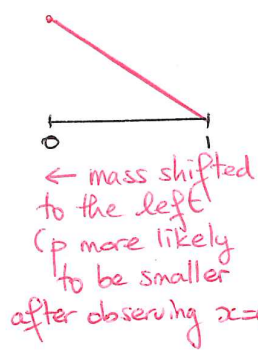 0 1
← mass shifted
to the left
(p more likely
to be smaller
after observing x=